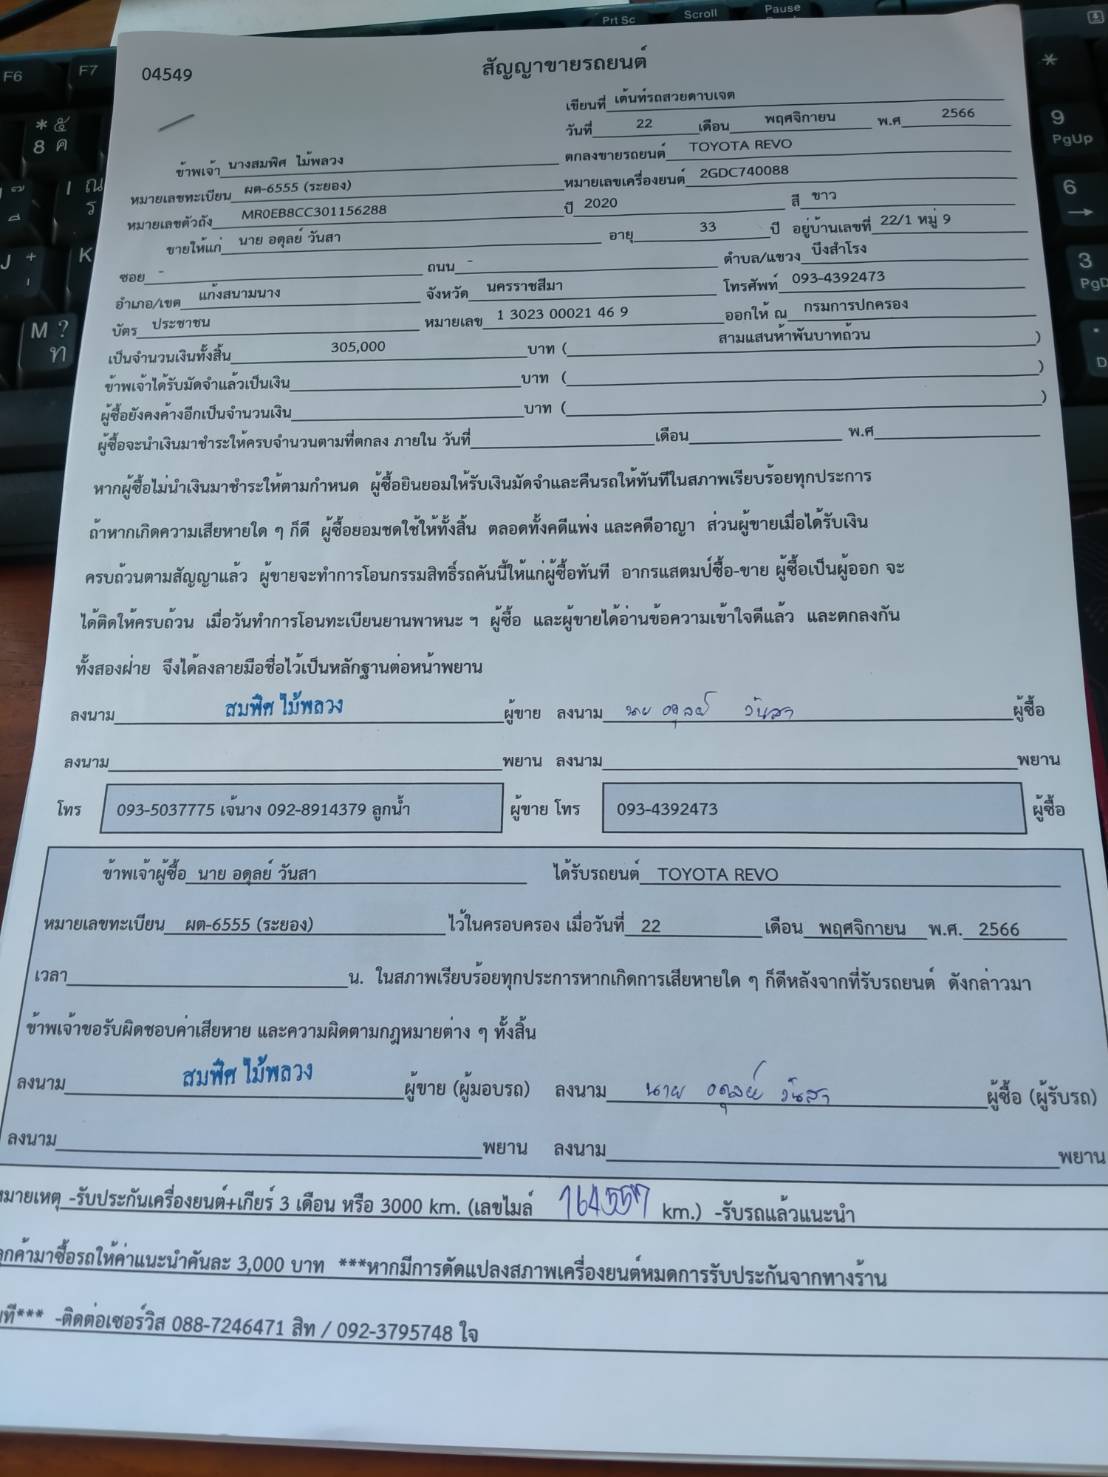 04549
สัญญาขายรถยนต์
เขียนที่ เต้นท์รถสวยดาบเจต
วันที่ 22 เดือน พฤศจิกายน พ.ศ 2566
ข้าพเจ้า นางสมพิศ ไม้พลวง ตกลงขายรถยนต์ TOYOTA REVO
หมายเลขทะเบียน ผต-6555 (ระยอง) หมายเลขเครื่องยนต์ 2GDC740088
หมายเลขตัวถัง MR0EB8CC301156288 ปี 2020 สี ขาว
ขายให้แก่ นาย อดุลย์ วันสา อายุ 33 ปี อยู่บ้านเลขที่ 22/1 หมู่ 9
ซอย - ถนน - ตำบล/แขวง บึงสำโรง
อำเภอ/เขต แก้งสนามนาง จังหวัด นครราชสีมา โทรศัพท์ 093-4392473
บัตร ประชาชน หมายเลข 1 3023 00021 46 9 ออกให้ ณ กรมการปกครอง
เป็นจำนวนเงินทั้งสิ้น 305,000 บาท ( สามแสนห้าพันบาทถ้วน )
ข้าพเจ้าได้รับมัดจำแล้วเป็นเงิน บาท ( )
ผู้ซื้อยังคงค้างอีกเป็นจำนวนเงิน บาท ( )
ผู้ซื้อจะนำเงินมาชำระให้ครบจำนวนตามที่ตกลง ภายใน วันที่ เดือน พ.ศ
หากผู้ซื้อไม่นำเงินมาชำระให้ตามกำหนด ผู้ซื้อยินยอมให้รับเงินมัดจำและคืนรถให้ทันทีในสภาพเรียบร้อยทุกประการ
ถ้าหากเกิดความเสียหายใด ๆ ก็ดี ผู้ซื้อยอมชดใช้ให้ทั้งสิ้น ตลอดทั้งคดีแพ่ง และคดีอาญา ส่วนผู้ขายเมื่อได้รับเงิน
ครบถ้วนตามสัญญาแล้ว ผู้ขายจะทำการโอนกรรมสิทธิ์รถคันนี้ให้แก่ผู้ซื้อทันที อากรแสตมป์ซื้อ-ขาย ผู้ซื้อเป็นผู้ออก จะ
ได้ติดให้ครบถ้วน เมื่อวันทำการโอนทะเบียนยานพาหนะ ฯ ผู้ซื้อ และผู้ขายได้อ่านข้อความเข้าใจดีแล้ว และตกลงกัน
ทั้งสองฝ่าย จึงได้ลงลายมือชื่อไว้เป็นหลักฐานต่อหน้าพยาน
ลงนาม สมพิศ ไม้พลวง ผู้ขาย ลงนาม นาย อดุลย์ วันสา ผู้ซื้อ
ลงนาม พยาน ลงนาม พยาน
โทร 093-5037775 เจ้นาง 092-8914379 ลูกน้ำ ผู้ขาย โทร 093-4392473 ผู้ซื้อ
ข้าพเจ้าผู้ซื้อ นาย อดุลย์ วันสา ได้รับรถยนต์ TOYOTA REVO
หมายเลขทะเบียน ผต-6555 (ระยอง) ไว้ในครอบครอง เมื่อวันที่ 22 เดือน พฤศจิกายน พ.ศ. 2566
เวลา น. ในสภาพเรียบร้อยทุกประการหากเกิดการเสียหายใด ๆ ก็ดีหลังจากที่รับรถยนต์ ดังกล่าวมา
ข้าพเจ้าขอรับผิดชอบค่าเสียหาย และความผิดตามกฎหมายต่าง ๆ ทั้งสิ้น
ลงนาม สมพิศ ไม้พลวง ผู้ขาย (ผู้มอบรถ) ลงนาม นาย อดุลย์ วันสา ผู้ซื้อ (ผู้รับรถ)
ลงนาม พยาน ลงนาม พยาน
หมายเหตุ -รับประกันเครื่องยนต์+เกียร์ 3 เดือน หรือ 3000 km. (เลขไมล์ 164557 km.) -รับรถแล้วแนะนำ
ลูกค้ามาซื้อรถให้ค่าแนะนำคันละ 3,000 บาท ***หากมีการดัดแปลงสภาพเครื่องยนต์หมดการรับประกันจากทางร้าน
ที*** -ติดต่อเซอร์วิส 088-7246471 สิท / 092-3795748 ใจ